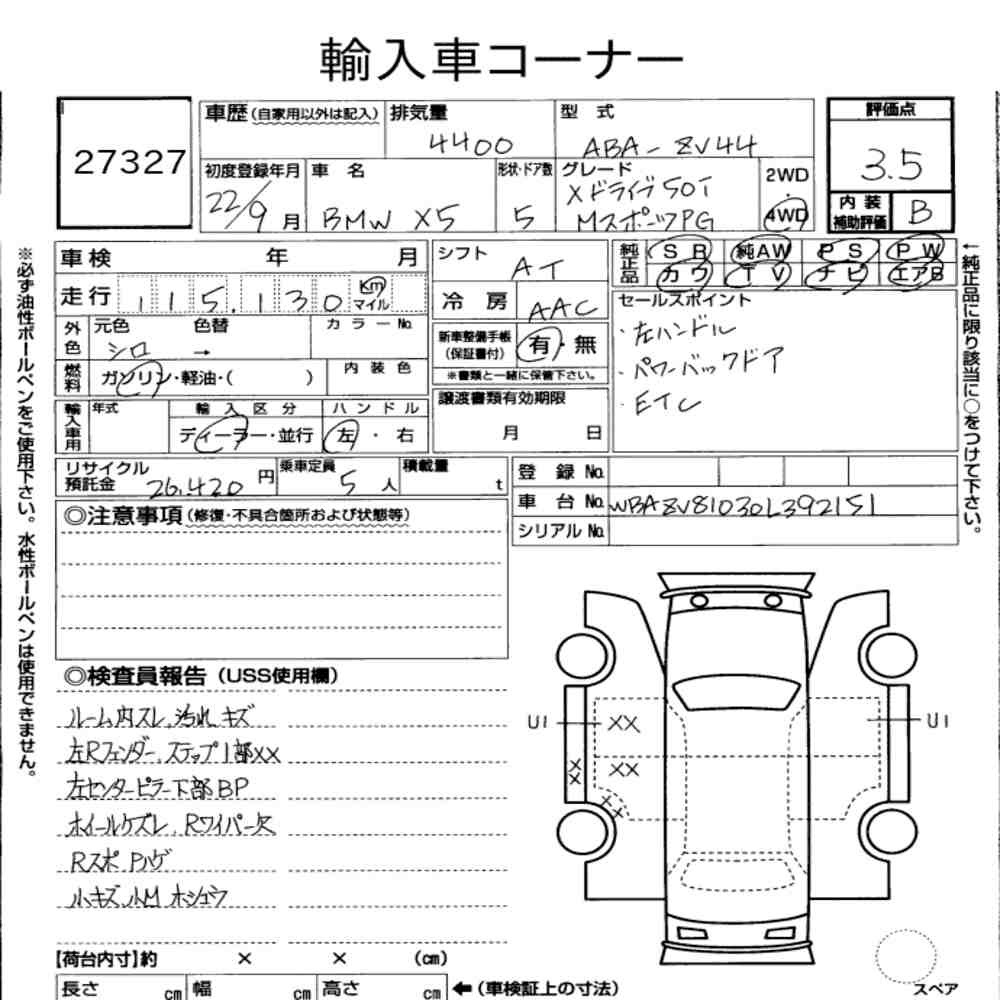 輸入車コーナー
27327
車歴(自家用以外は記入)
排気量
4400
型 式
ABA-ZV44
初度登録年月
22/9月
車 名
BMW X5
形状・ドア数
5
グレード
Xドライブ50i
MスポーツPG
2WD
・
4WD
評価点
3.5
内 装
補助評価
B
※必ず油性ボールペンをご使用下さい。水性ボールペンは使用できません。
車検 年 月
走行 115,130 Km マイル
外色
元色 色替 カラーNo.
シロ →
燃料
ガソリン・軽油・( )
内 装 色
輸入車用
年式
輸 入 区 分
ディーラー・並行
ハ ン ド ル
左・右
シフト
AT
冷 房
AAC
新車整備手帳
(保証書付)
有・無
※書類と一緒に保管下さい。
譲渡書類有効期限
月 日
純正品
SR 純AW PS PW
カワ TV ナビ エアB
セールスポイント
・左ハンドル
・パワーバックドア
・ETC
←純正品に限り該当に○をつけて下さい。
リサイクル
預託金
26,420円
乗車定員
5人
積載量
t
登 録 No.
車 台 No.
WBAZV81030L392151
シリアル No.
◎注意事項(修復・不具合箇所および状態等)
◎検査員報告(USS使用欄)
ルーム内スレ、汚れ、キズ
左Rフェンダー、ステップ1部XX
左センターピラー下部BP
ホイールケズレ、Rワイパー欠
Rスポ Pハゲ
小キズ、小M ホシュウ
U1
XX
XX
XX
XX
U1
スペア
【荷台内寸】約 × × (cm)
長さ cm
幅 cm
高さ cm
←(車検証上の寸法)